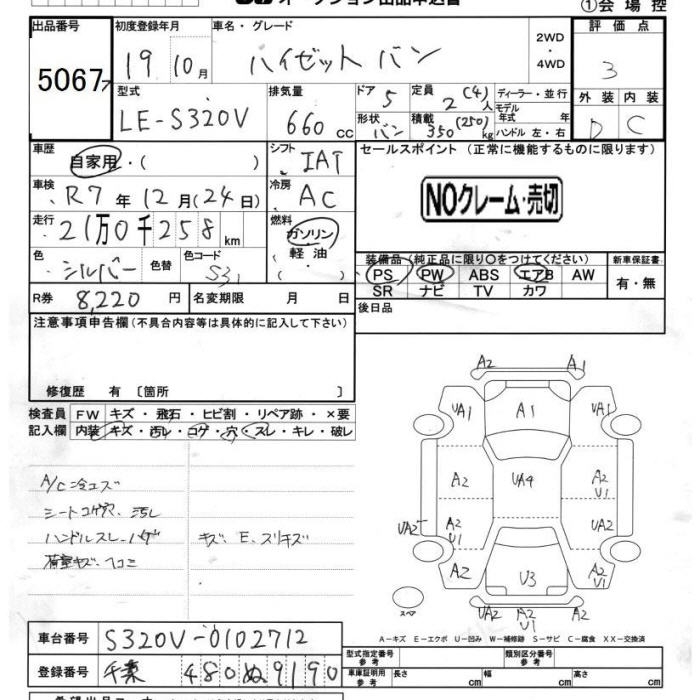 オークション出品申込書
①会場控
出品番号 初度登録年月 車名・グレード 評価点
5067 19 10月 ハイゼット バン 2WD・4WD 3
型式 排気量 ドア 定員 ディーラー・並行 外装 内装
LE-S320V 660cc 5 2(4)人 モデル年式 年 D C
形状 積載
バン 350(250)kg ハンドル 左・右
車歴 シフト セールスポイント(正常に機能するものに限ります)
自家用・( ) IAT
車検 冷房
R7年12月(24日) AC NOクレーム・売切
走行 燃料
21万0千258km ガソリン
軽油
( )
色 色替 カラーコード 装備品(純正品に限り○をつけてください) 新車保証書
シルバー S31 PS PW ABS エアB AW 有・無
SR ナビ TV カワ
R券 8,220円 名変期限 月 日 後日品
注意事項申告欄(不具合内容等は具体的に記入して下さい)
修復歴 有〔箇所 〕
検査員 FW キズ・飛石・ヒビ割・リペア跡・×要
記入欄 内装 キズ・汚レ・コゲ・穴・スレ・キレ・破レ
A/C冷エズ
シートコゲ穴、汚レ
ハンドルスレ・ハゲ キズ、E、スリキズ
荷室キズ・ヘコミ
A2 A1
UA1 A1 UA1
A2 UA4 A2 U1
UA2 A2 U1 UA2
A2 U3 A2 U1
スペア UA2 A2 U1 UA2
A-キズ E-エクボ U-凹み W-補修跡 S-サビ C-腐食 XX-交換済
車台番号 S320V-0102712
型式指定番号 参考 類別区分番号 参考
登録番号 千葉 480 ぬ 9190
車庫証明用 参考 長さ cm 幅 cm 高さ cm